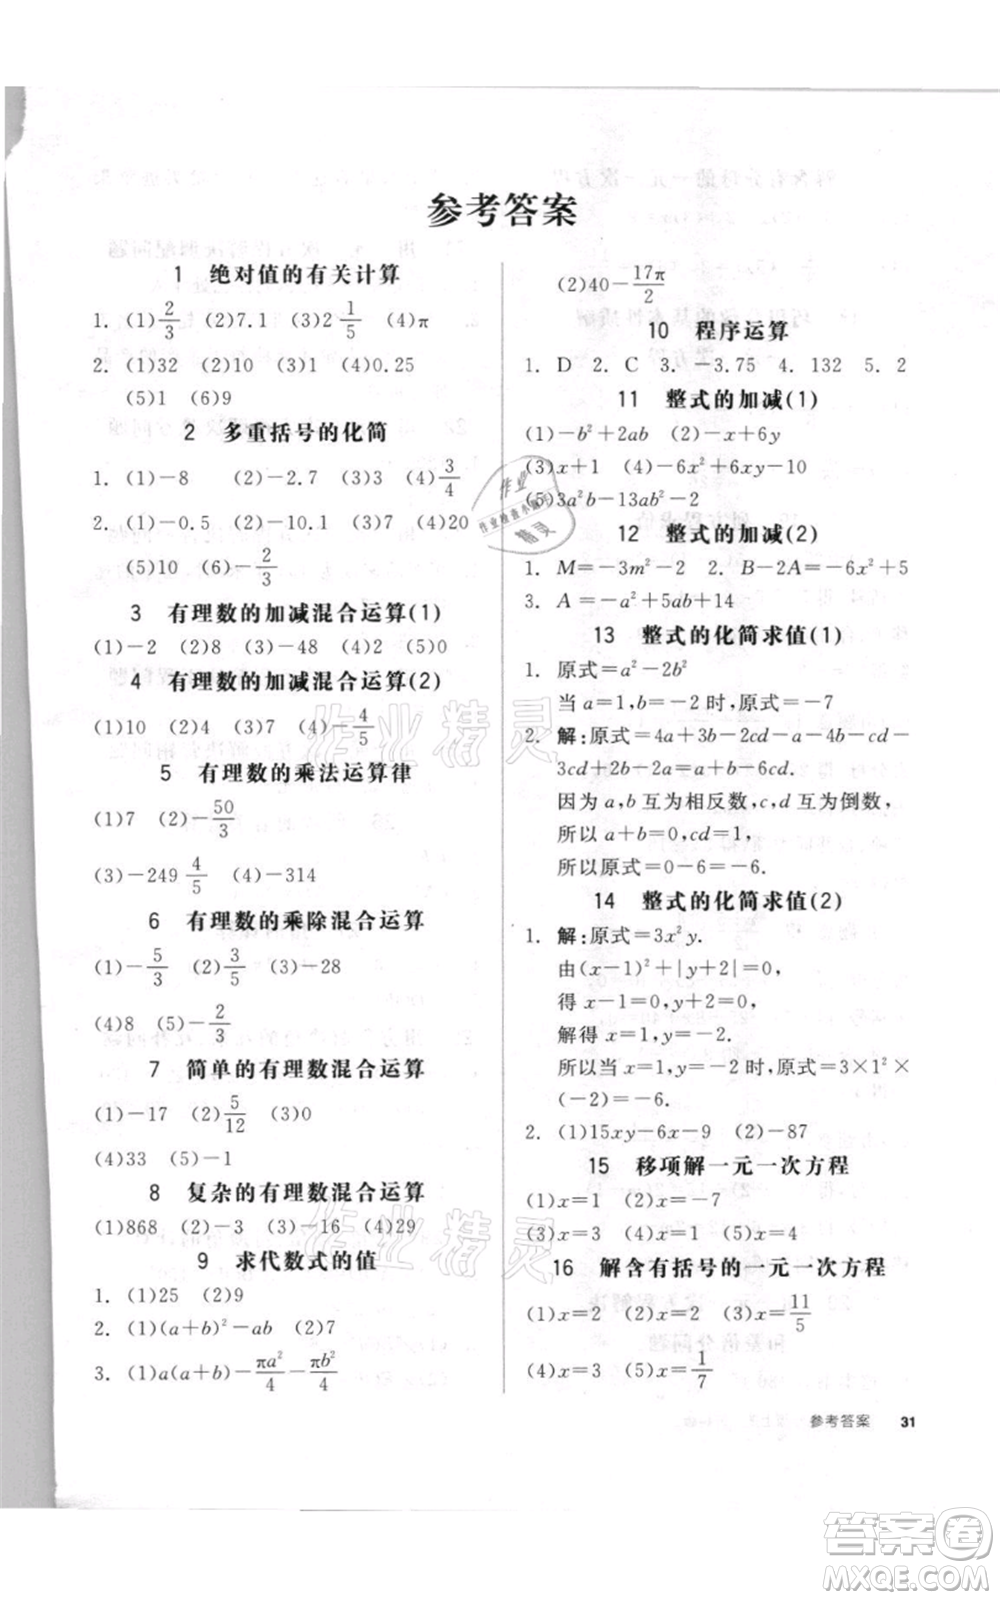 参考答案
1 绝对值的有关计算
1. (1)2/3 (2)7.1 (3)2 1/5 (4)π
2. (1)32 (2)10 (3)1 (4)0.25
(5)1 (6)9
2 多重括号的化简
1. (1)-8 (2)-2.7 (3)3 (4)3/4
2. (1)-5 (2)-10.1 (3)5 (4)20
(5)10 (6)-2/3
3 有理数的加减混合运算(1)
(1)-2 (2)8 (3)-48 (4)2 (5)0
4 有理数的加减混合运算(2)
(1)10 (2)4 (3)7 (4)-4/5
5 有理数的乘法运算律
(1)7 (2)-50/3
(3)-249 4/5 (4)-314
6 有理数的乘除混合运算
(1)-5/3 (2)3/5 (3)-28
(4)8 (5)-2/3
7 简单的有理数混合运算
(1)-17 (2)5/12 (3)0
(4)33 (5)-1
8 复杂的有理数混合运算
(1)868 (2)-3 (3)-16 (4)29
9 求代数式的值
1. (1)25 (2)9
2. (1)(a+b)²-ab (2)7
3. (1)a(a+b)-πa²/4-πb²/4
(2)40-17π/2
10 程序运算
1. D 2. C 3. -3.75 4. 132 5. 2
11 整式的加减(1)
(1)-b²+2ab (2)-x+6y
(3)x+1 (4)-6x²+6xy-10
(5)3a²b-13ab²-2
12 整式的加减(2)
1. M=-3m²-2 2. B-2A=-6x²+5
3. A=-a²+5ab+14
13 整式的化简求值(1)
1. 原式=a²-2b²
当a=1,b=-2时,原式=-7
2. 解:原式=4a+3b-2cd-a-4b-cd-
3cd+2b-2a=a+b-6cd.
因为a,b互为相反数,c,d互为倒数,
所以a+b=0,cd=1,
所以原式=0-6=-6.
14 整式的化简求值(2)
1. 解:原式=3x²y.
由(x-1)²+|y+2|=0,
得x-1=0,y+2=0,
解得x=1,y=-2.
所以当x=1,y=-2时,原式=3×1²×
(-2)=-6.
2. (1)15xy-6x-9 (2)-87
15 移项解一元一次方程
(1)x=1 (2)x=-7
(3)x=3 (4)x=1 (5)x=4
16 解含有括号的一元一次方程
(1)x=2 (2)x=2 (3)x=11/5
(4)x=3 (5)x=1/7
参考答案 31
作业精灵
作业精灵
作业
作业检查小助手
精灵
答案卷
MXQE.COM